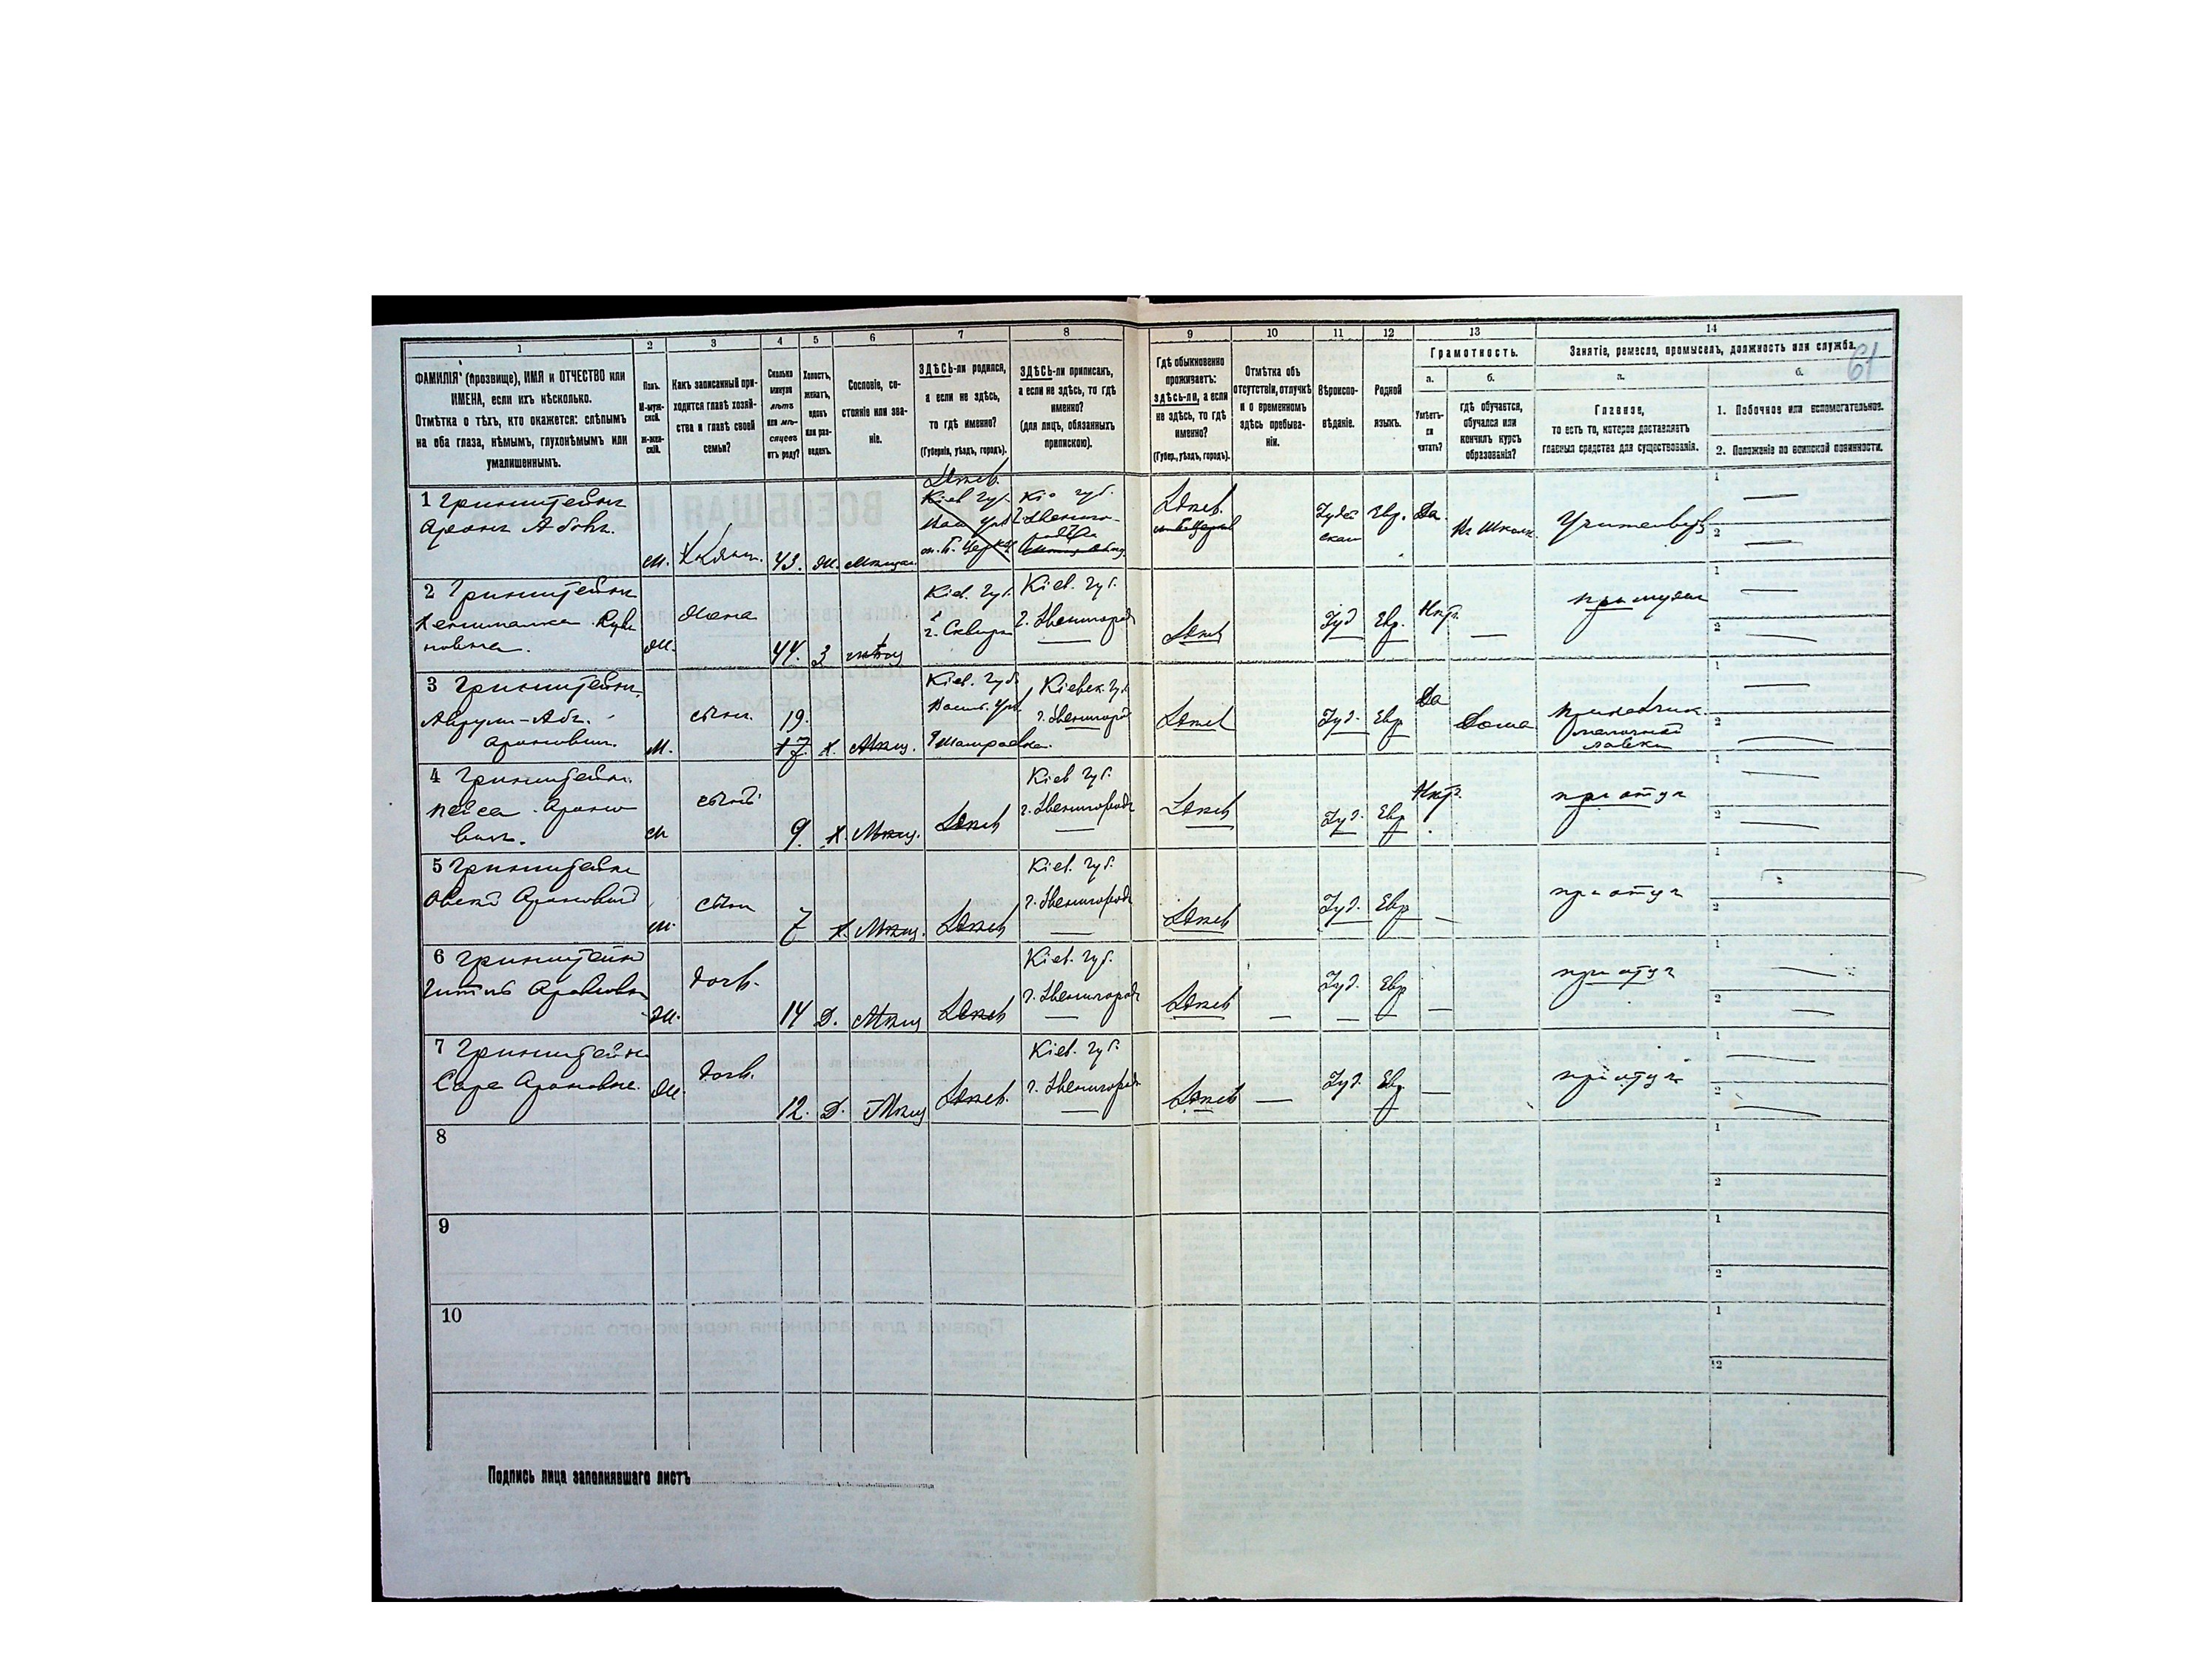 1 2 3 4 5 6 7 8 9 10 11 12 13 14
61
ФАМИЛІЯ (прозвище), ИМЯ и ОТЧЕСТВО или
ИМЕНА, если ихъ нѣсколько.
Отмѣтка о тѣхъ, кто окажется: слѣпымъ
на оба глаза, нѣмымъ, глухонѣмымъ или
умалишеннымъ.
Полъ.
М-муж-
ской.
Ж-жен-
скій.
Какъ записанный при-
ходится главѣ хозяй-
ства и главѣ своей
семьи?
Сколько
минуло
лѣтъ
или мѣ-
сяцевъ
отъ роду?
Холостъ,
женатъ,
вдовъ
или раз-
веденъ.
Сословіе, со-
стояніе или зва-
ніе.
ЗДѢСЬ-ли родился,
а если не здѣсь,
то гдѣ именно?
(Губернія, уѣздъ, городъ).
ЗДѢСЬ-ли приписанъ,
а если не здѣсь, то гдѣ
именно?
(для лицъ, обязанныхъ
припискою).
Гдѣ обыкновенно
проживаетъ:
здѣсь-ли, а если
не здѣсь, то гдѣ
именно?
(Губер., уѣздъ, городъ).
Отмѣтка объ
отсутствіи, отлучкѣ
и о временномъ
здѣсь пребыва-
ніи.
Вѣроиспо-
вѣданіе.
Родной
языкъ.
Грамотность.
а. б.
Умѣетъ-
ли
читать?
гдѣ обучается,
обучался или
кончилъ курсъ
образованія?
Занятіе, ремесло, промыселъ, должность или служба.
а. б.
Главное,
то есть то, которое доставляетъ
главныя средства для существованія.
1. Побочное или вспомогательное.
2. Положеніе по воинской повинности.
1 Гринштейнъ
Аронъ
м. Хозяин. 43. Ж.
Здѣсь
Кіев Губ.
Кіе губ.
Здѣсь
Іудей
скаго
Евр. Да.
1
2
2 Гринштейнъ
жена
44. З
Кіев. Губ.
г. Сквира
Кіев. Губ.
г. Звенигород
Здѣсь
Іуд Евр. Нѣтъ
при мужѣ
1
2
3 Гринштейнъ
Аронович.
м. сынъ.
19.
17. Х. Мѣщ.
Кіев. Губ.
Кіевск. Губ.
г. Звенигород
Здѣсь
Іуд. Евр Да
Дома
Прикащик.
лавки
1
2
4 Гринштейн.
Пейса Ароно
вич.
м сынъ 9. Х. Мѣщ. Здѣсь
Кіев Губ.
г. Звенигород
Здѣсь
Іуд. Евр Нѣтъ.
при отцѣ
1
2
5 Гринштейн
Овсей Аронович
м. сынъ 7 Х. Мѣщ. Здѣсь
Кіев. Губ.
г. Звенигород
Здѣсь
Іуд. Евр
при отцѣ
1
2
6 Гринштейн
Ж. дочь. 14 Д. Мѣщ Здѣсь
Кіев. Губ.
г. Звенигород
Здѣсь
Іуд. Евр
при отцѣ
1
2
7 Гринштейн
Сара Ароновна.
Ж. дочь. 12. Д. Мѣщ Здѣсь.
Кіев. Губ.
г. Звенигород
Здѣсь
Іуд. Евр.
при отцѣ
1
2
8
1
2
9
1
2
10
1
2
Подпись лица заполнявшаго листъ